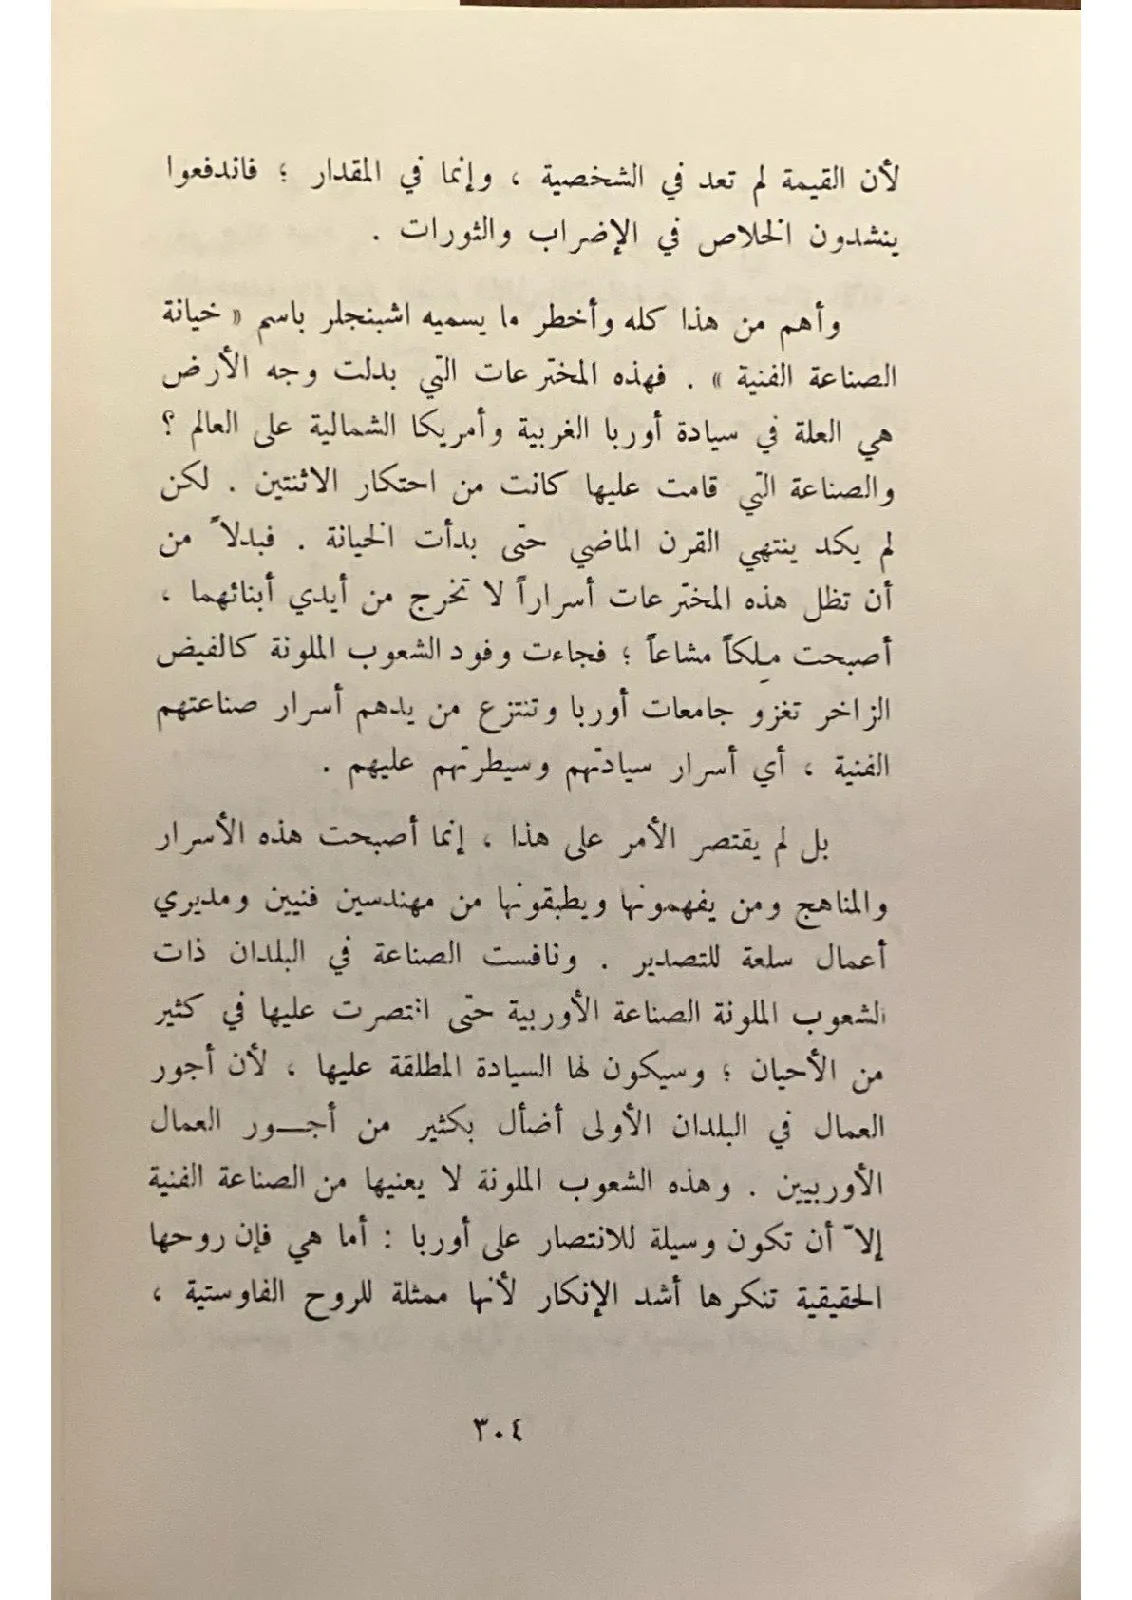 لأن القيمة لم تعد في الشخصية ، وإنما في المقدار ؛ فاندفعوا
ينشدون الخلاص في الإضراب والثورات .
وأهم من هذا كله وأخطر ما يسميه اشبنجلر باسم « خيانة
الصناعة الفنية » . فهذه المخترعات التي بدلت وجه الأرض
هي العلة في سيادة أوربا الغربية وأمريكا الشمالية على العالم ؟
والصناعة التي قامت عليها كانت من احتكار الاثنتين . لكن
لم يكد ينتهي القرن الماضي حتى بدأت الخيانة . فبدلاً من
أن تظل هذه المخترعات أسراراً لا تخرج من أيدي أبنائهما ،
أصبحت مِلكاً مشاعاً ؛ فجاءت وفود الشعوب الملونة كالفيض
الزاخر تغزو جامعات أوربا وتنتزع من يدهم أسرار صناعتهم
الفنية ، أي أسرار سيادتهم وسيطرتهم عليهم .
بل لم يقتصر الأمر على هذا ، إنما أصبحت هذه الأسرار
والمناهج ومن يفهمونها ويطبقونها من مهندسين فنيين ومديري
أعمال سلعة للتصدير . ونافست الصناعة في البلدان ذات
الشعوب الملونة الصناعة الأوربية حتى انتصرت عليها في كثير
من الأحيان ؛ وسيكون لها السيادة المطلقة عليها ، لأن أجور
العمال في البلدان الأولى أضأل بكثير من أجـــور العمال
الأوربيين . وهذه الشعوب الملونة لا يعنيها من الصناعة الفنية
إلاّ أن تكون وسيلة للانتصار على أوربا : أما هي فإن روحها
الحقيقية تنكرها أشد الإنكار لأنها ممثلة للروح الفاوستية ،
٣٠٤